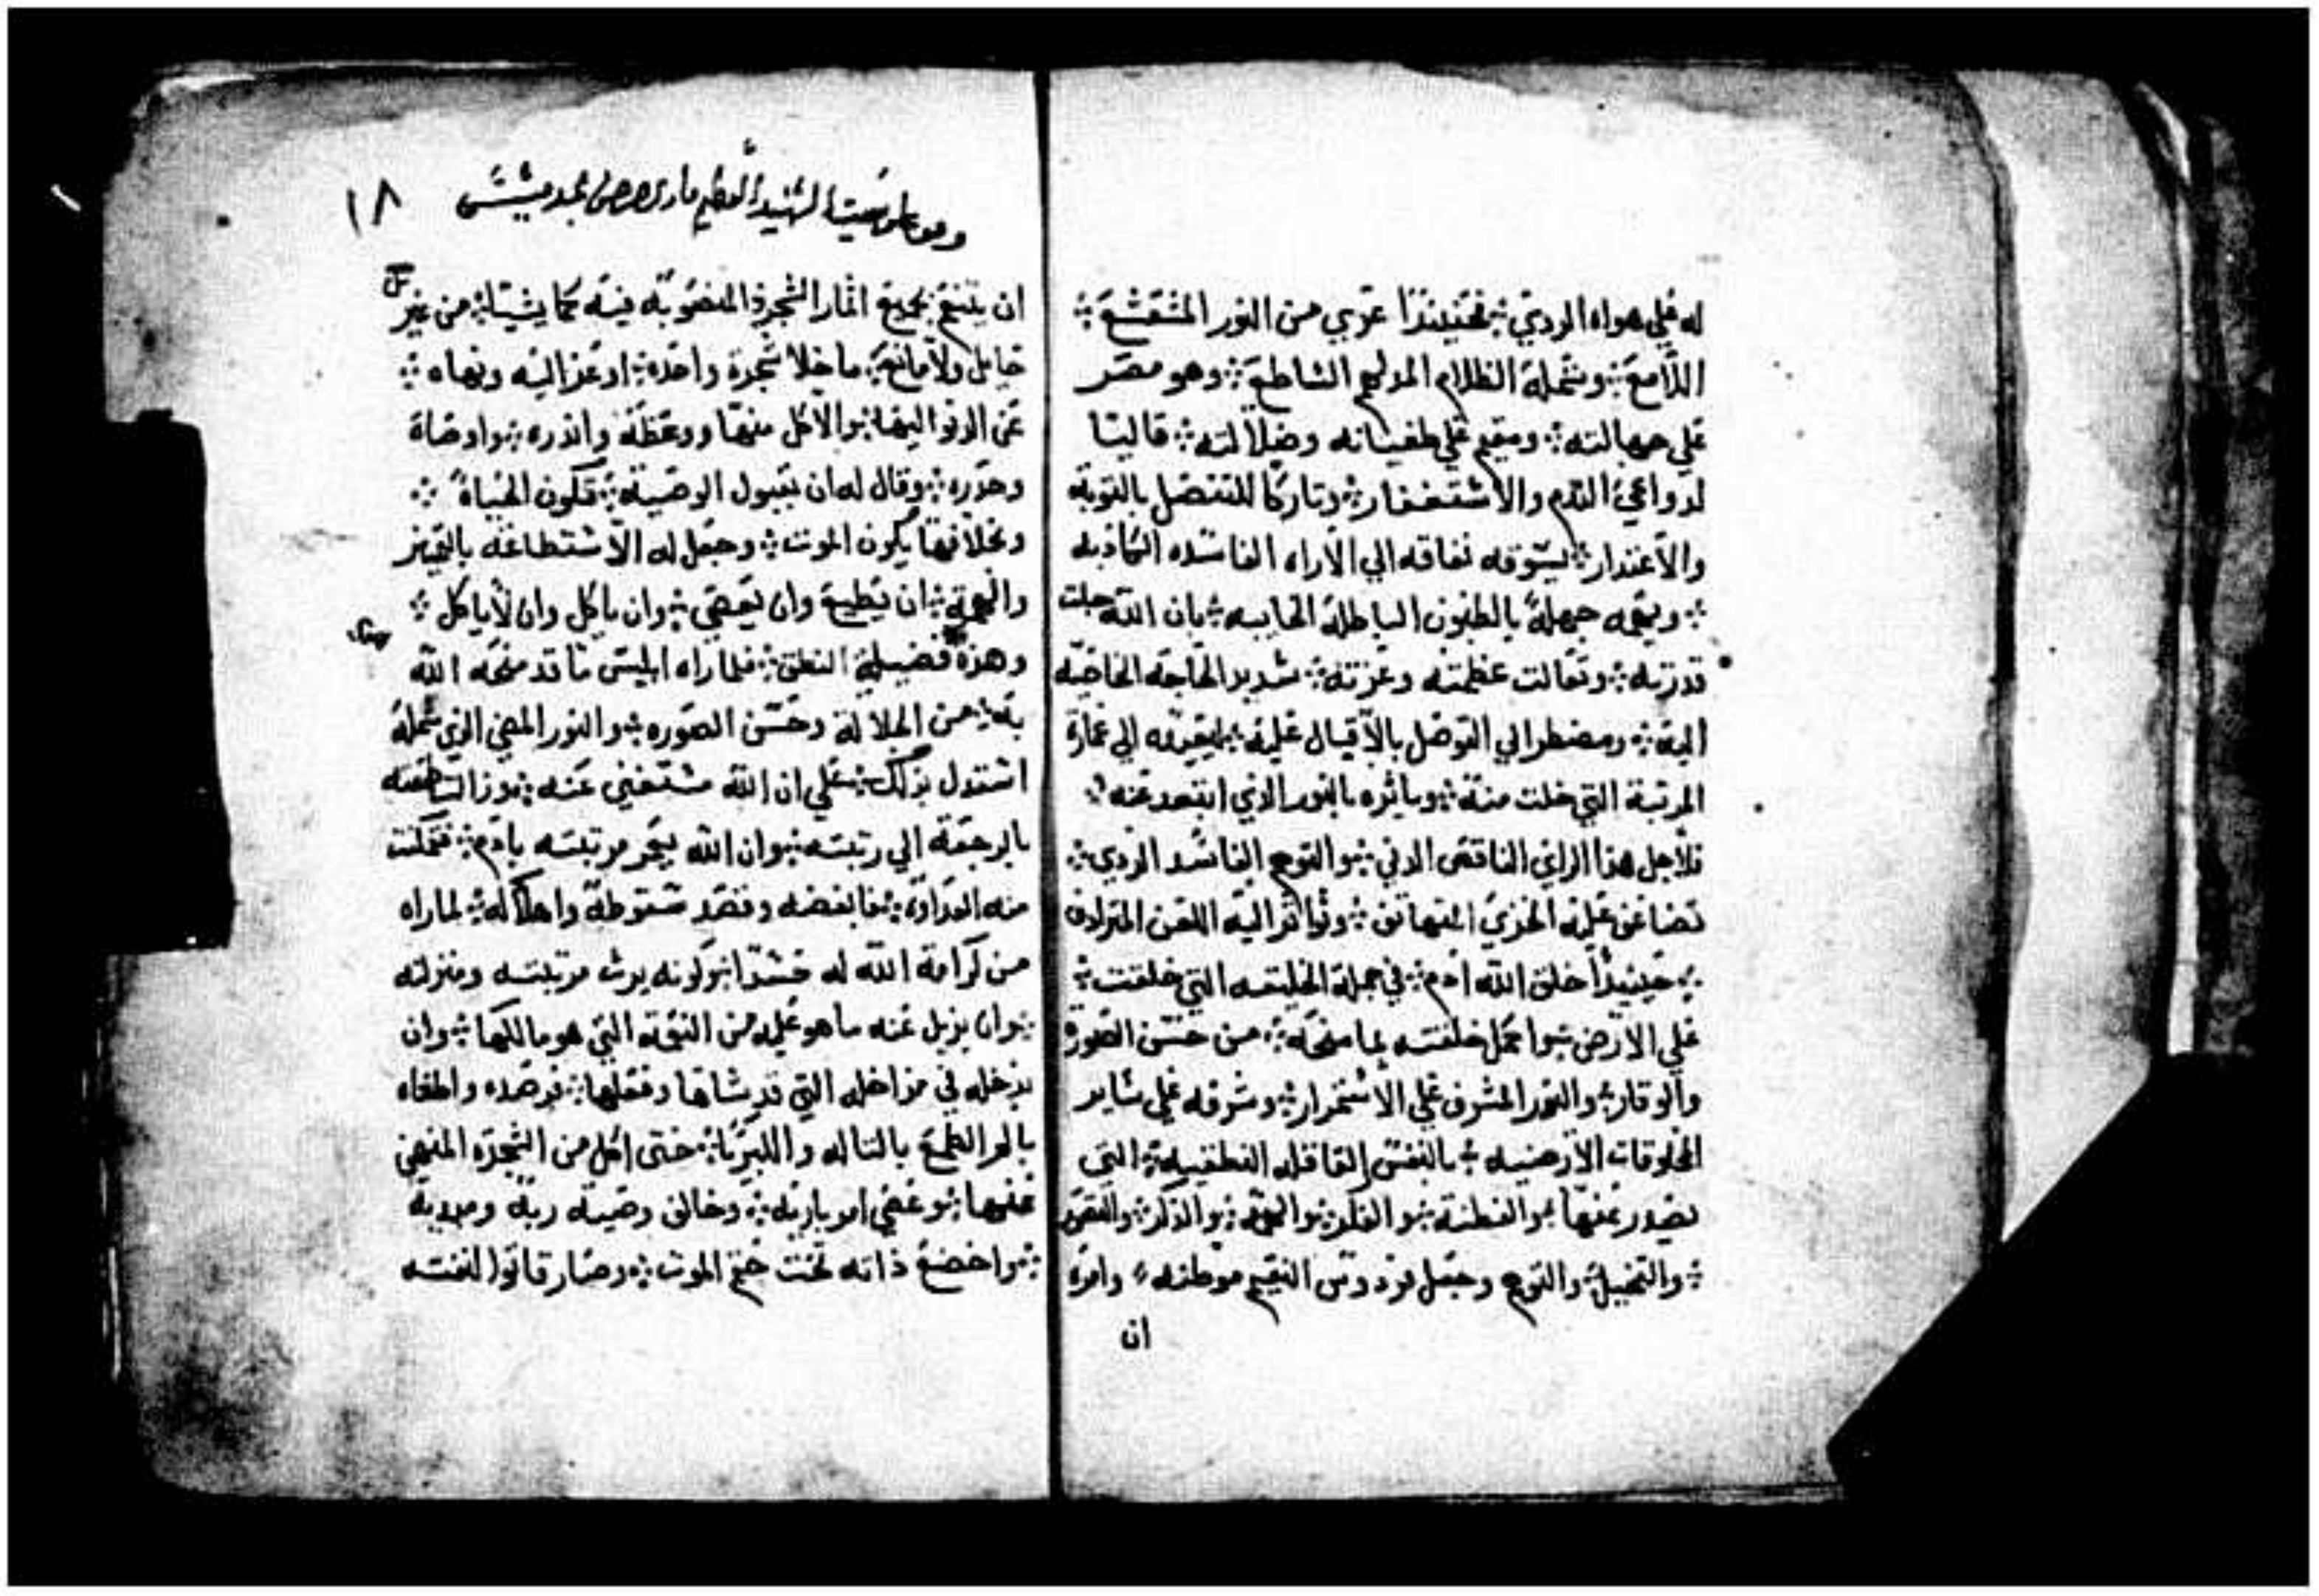 له علي هواه الردي فحينيذا عري من النور المشعشع
اللامع وشمله الظلام المدلهم الشاطع وهو مصر
علي جهالته ومقيم علي طغيانه وضلالته قاليا
لدواعي الندم والاستغفار وتاركا للتنصل بالتوبة
والاعتدار يسوقه نفاقه الي الاراء الفاسده الكاذبه
جهله بالظنون الباطله الخايبه بان الله جلت
قدرته وتعالت عظمته وعزته شديد الحاجه الخاصه
اليه ومضطر الي التوصل بالاقبال عليه ليعيده الي عمارة
المرتبة التي خلت منه وياثره بالنور الذي ابتعد عنه
فلاجل هذا الراي الناقص الدني والتوهم الفاسد الردي
تضاعف عليه الخزي المتهاتف وتواتر اليه اللعن المترادف
حينيذا خلق الله ادم في جملة الخليقه التي خلقت
علي الارض واكمل خلقته بما منحه من حسن الصورة
والوقار والنور المشرف علي الاستمرار وشرفه علي ساير
المخلوقات الارضيه بالنفس العاقله النطقيه التي
تصدر عنها الفطنة والفكر والهمة والذكر والتصور
والتخييل والتوهم وجعل فردوس النعيم موطنه وامره
ان
وقف علي بيعة الشهيد العظيم ماري جرجس
١٨
ان يتنعم بجميع اثمار الشجرة المنصوبة فيه كما يشتا من غير
حايل ولا مانع ما خلا شجرة واحده اوعز اليه ونهاه
عن الدنو اليها والاكل منها ووعظه وانذره واوصاه
وحذره وقال له ان بقبول الوصية تكون الحياة
وبخلافها يكون الموت وجعل له الاستطاعه بالتميز
والهمة ان يطيع وان يعصي وان ياكل وان لا ياكل
وهذه فضيلة النطق فلما راه ابليس ما قد منحه الله
من الجلالة وحسن الصوره والنور المضي الذي شمله
استدل بذلك علي ان الله مستغني عنه
بالرجعة الي رتبته وان الله يعمر مرتبته بادم فتمكنت
منه العداوة فابغضه وقصد سقوطه واهلاكه لما راه
من كرامة الله له حسدا كونه يرث مرتبته ومنزلته
وان يزيل عنه ما هو عليه من النعمة التي هو مالكها وان
يدخله في مداخله التي قد شاها وفعلها فرصده واطغاه
الطمع بالتاله والكبريا حتى اكل من الشجرة المنهي
عنها وعصي امر باريه وخالف وصية ربه ومهديه
واخضع ذاته تحت حكم الموت وصار